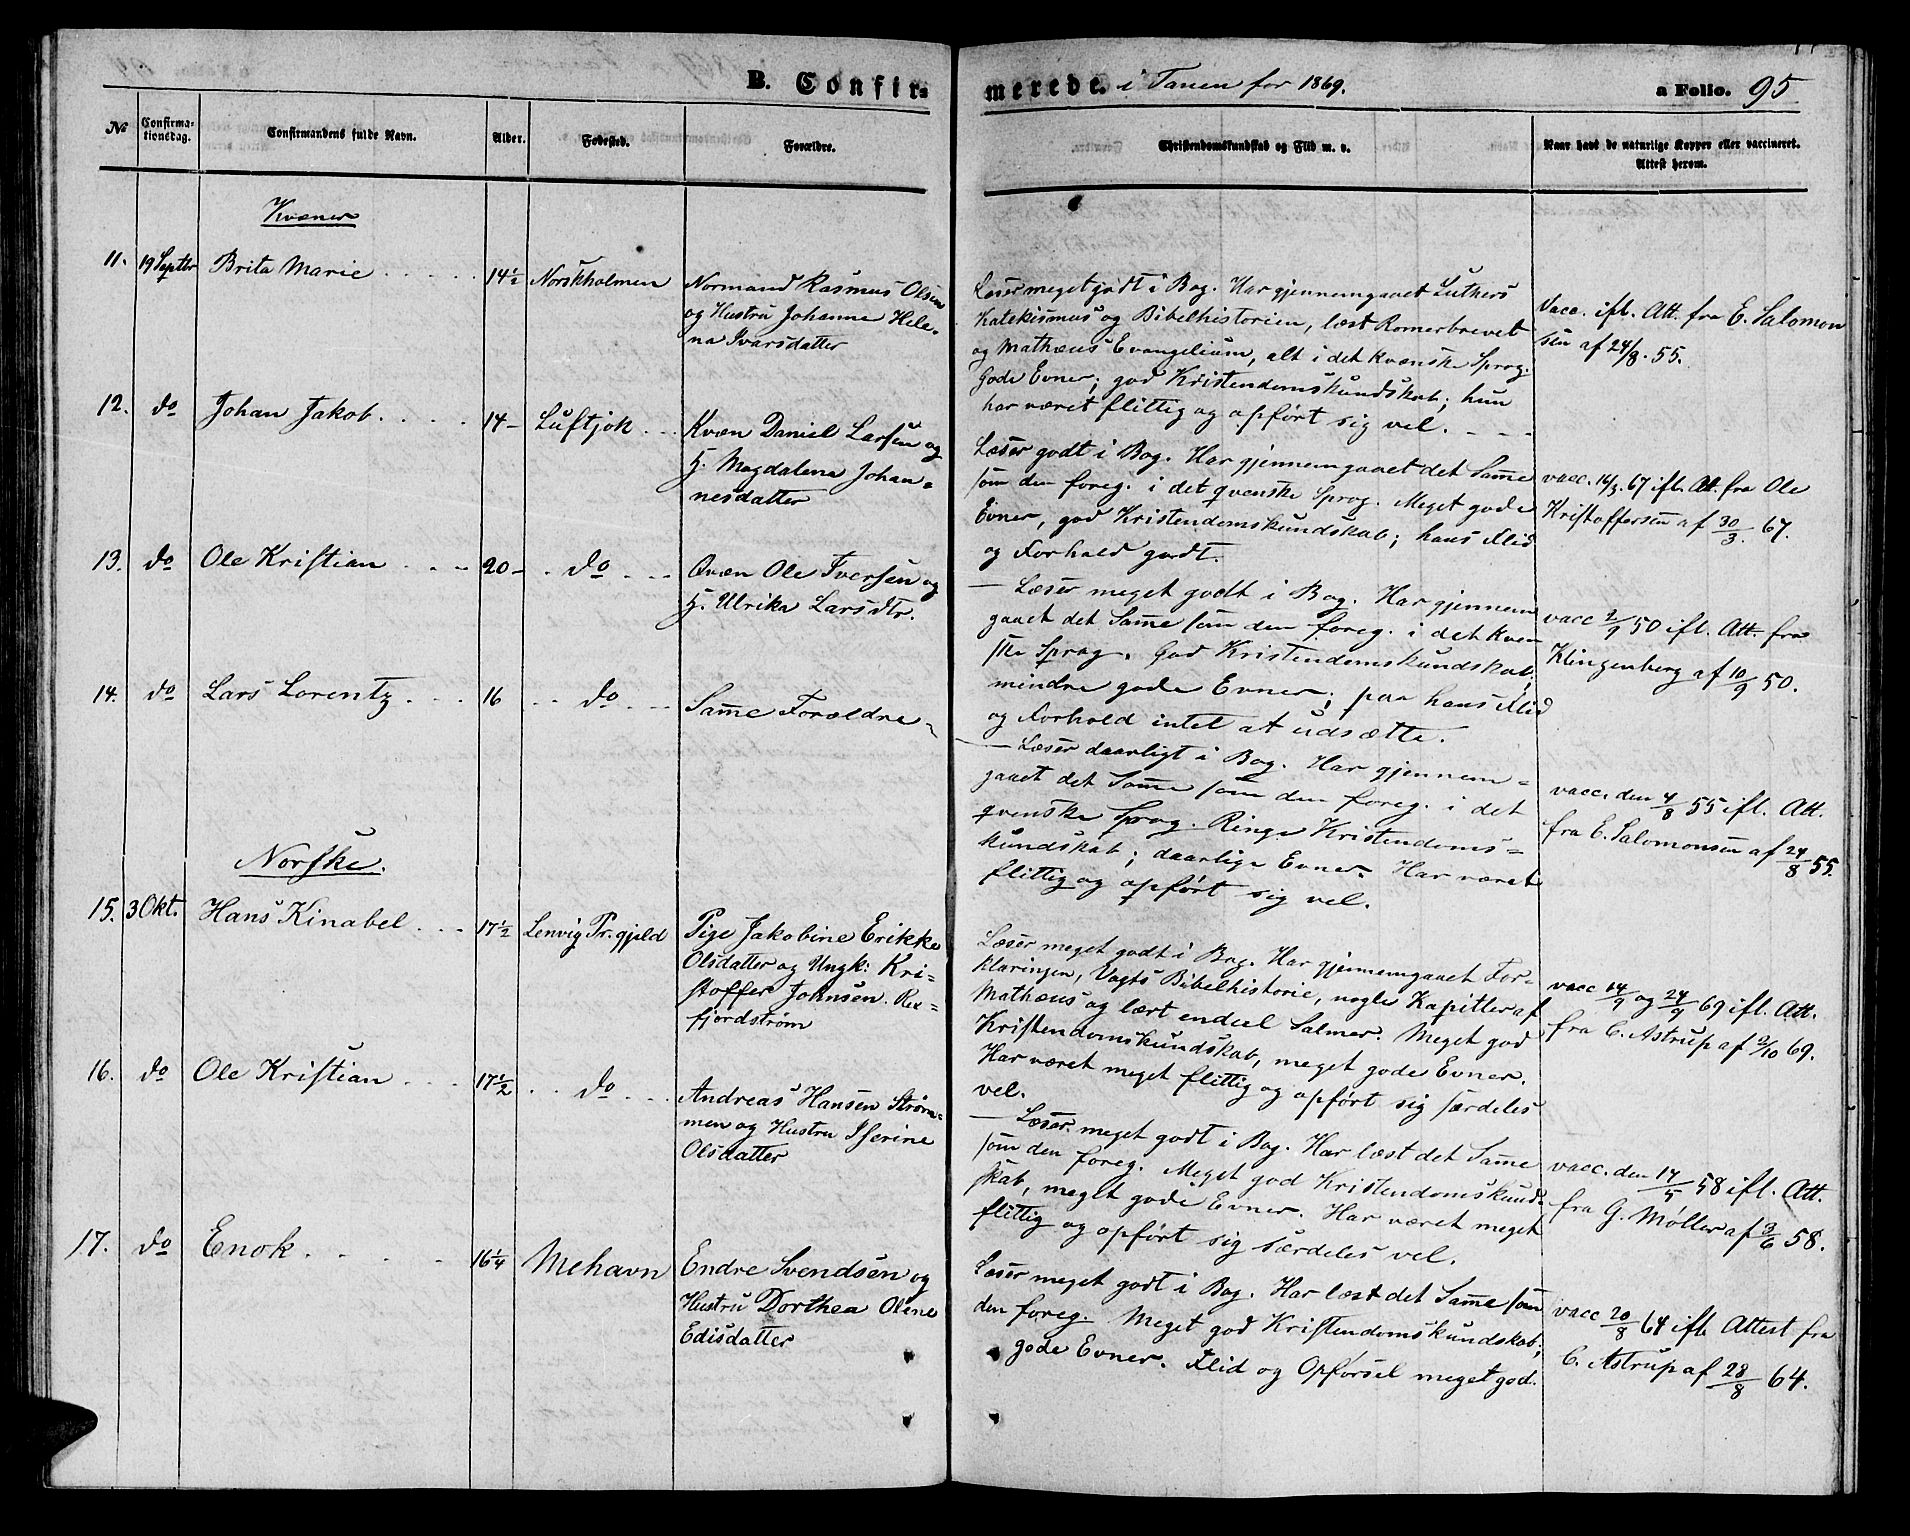 B. Confirmerede. i Tanen for 1869. a Folio. 95
No Confirmationsdag. Confirmandens fulde Navn. Alder. Fødested. Forældre. Christendomskundskab og Flid m. v. Naar havt de naturlige Kopper eller vaccineret. Attest herom.
Kvæner
11. 19 Septbr Brita Marie 14½ Norskholmen
Normand Rasmus Olsen
og Hustru Johanne Hele-
na Ivarsdatter
Læser meget godt i Bog. Har gjennemgaaet Luthers
Katekismus og Bibelhistorien, læst Romerbrevet
og Mathæus Evangelium, alt i det kvænske Sprog.
Gode Evner; god Kristendomskundskab; hun
har været flittig og opført sig vel.
Vacc. ifl. Att. fra E. Salomon
sen af 24/8. 55.
12. do Johan Jakob 14 Luftjok
Kvæn Daniel Larsen og
H. Magdalena Johan-
nesdatter
Læser godt i Bog. Har gjennemgaaet det Samme
som den foreg. i det qvenske Sprog. Meget gode
Evner, god Kristendomskundskab; hans Flid
og Forhold godt.
vacc. 16/3. 67 ifl. Att. fra Ole
Kristoffersen af 30/3. 67.
13. do Ole Kristian 20 do
Qvæn Ole Iversen og
H. Ulrika Larsdtr.
Læser meget godt i Bog. Har gjennem
gaaet det Samme som den foreg. i det kven
ske Sprog. God Kristendomskundskab,
mindre gode Evner; paa hans Flid
og Forhold intet at udsætte.
vacc 2/9 50 ifl. Att. fra
Klingenberg af 10/9 50.
14. do Lars Lorentz 16 do
Samme Forældre
Læser daarligt i Bog. Har gjennem-
gaaet det Samme som den foreg. i det
qvenske Sprog. Ringe Kristendoms-
kundskab; daarlige Evner. Har været
flittig og opført sig vel.
vacc. den 4/8 55 ifl. Att.
fra E. Salomonsen af 24/8 55.
Norske.
15. 3 Okt. Hans Kinabel 17½ Lenvig Pr. gjeld
Pige Jakobine Erikke
Olsdatter og Ungk: Kri-
stoffer Johnsen
fjordstrøm
Læser meget godt i Bog. Har gjennemgaaet For-
klaringen, Vogts Bibelhistorie, nogle Kapitler af
Mathæus og lært endeel Salmer. Meget god
Kristendomskundskab, meget gode Evner.
Har været meget flittig og opført sig særdeles
vel.
vacc 14/9 og 24/9 69 ifl. Att.
fra C. Astrup af 2/10 69.
16. do Ole Kristian 17½ do
Andreas Hansen Strøm-
men og Hustru Iserine
Olsdatter
Læser meget godt i Bog. Har læst det Samme
som den foreg. Meget god Kristendomskund-
skab, meget gode Evner. Har været meget
flittig og opført sig særdeles vel.
vacc. den 14/5 58 ifl. Att.
fra G. Møller af 3/6 58.
17. do Enok 16¼ Mehavn
Endre Svendsen og
Hustru Dorthea Olene
Edisdatter
Læser meget godt i Bog. Har læst det Samme som
den foreg. Meget god Kristendomskundskab;
gode Evner. Flid og Opførsel meget god.
vacc 20/8 64 ifl. Attest fra
C. Astrup af 28/8 64.